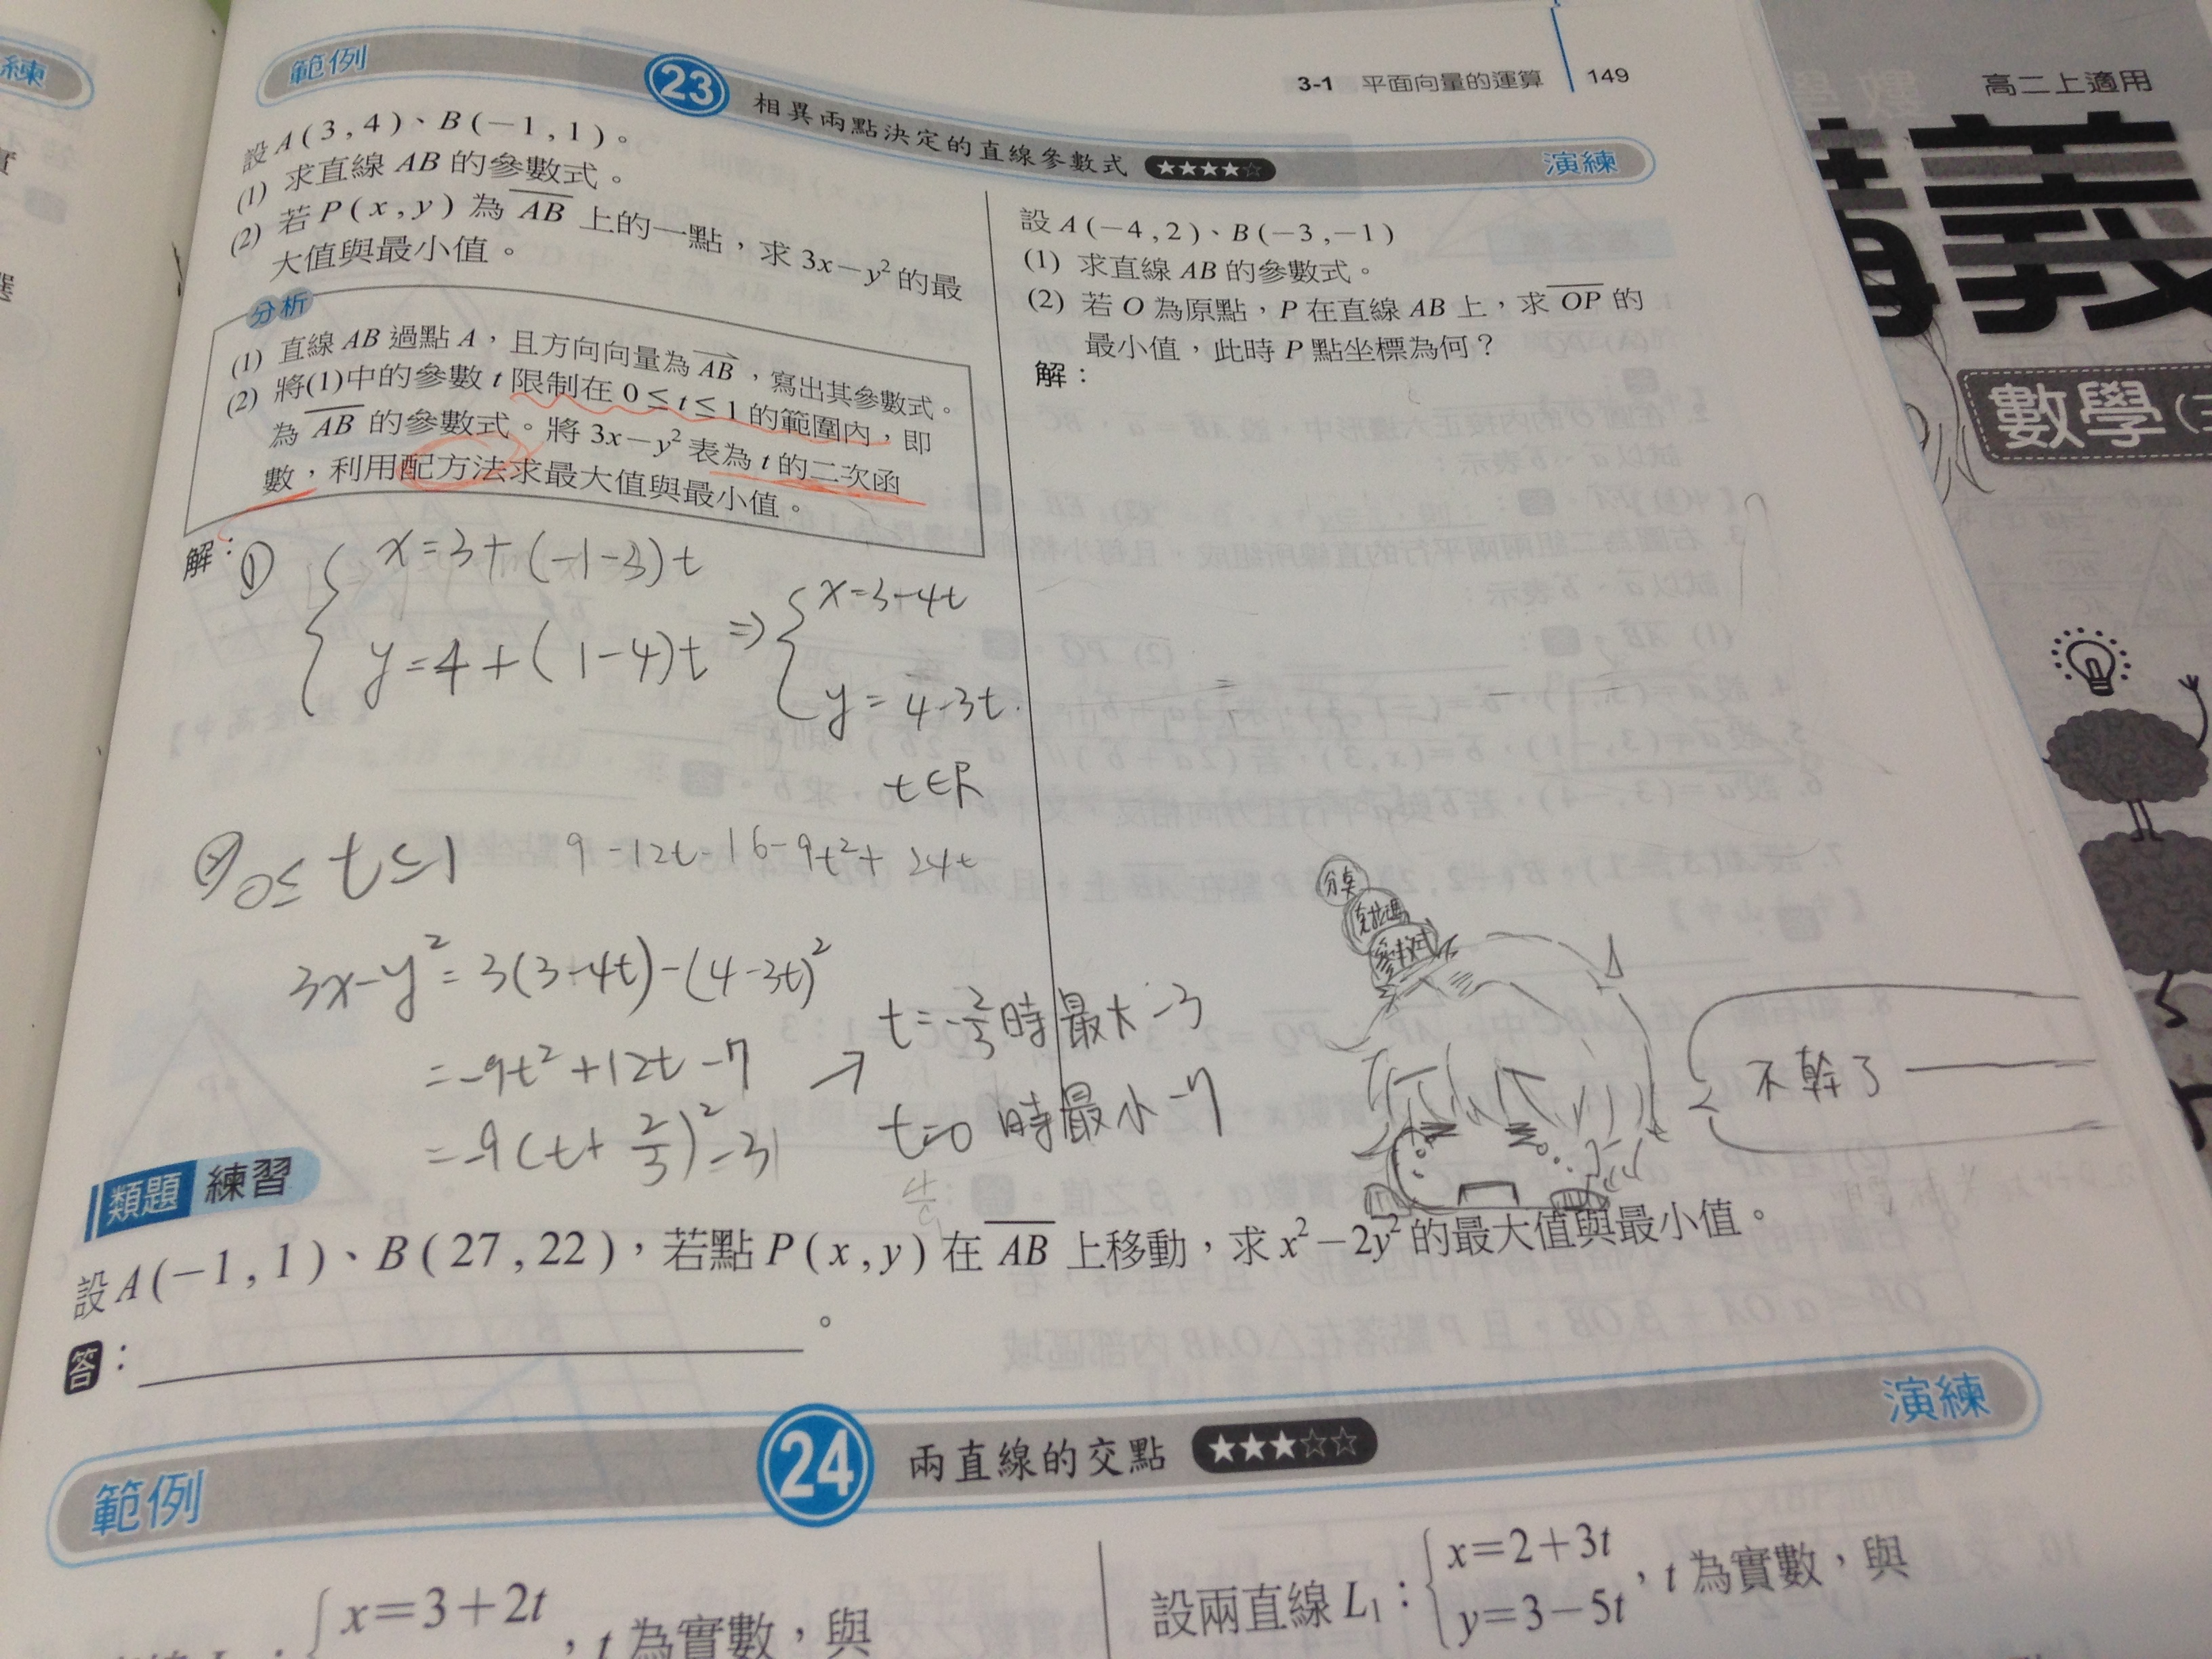 練
範例
23
相異兩點決定的直線參數式 ★★★★☆
3-1 平面向量的運算 149
演練
設A(3,4)、B(-1,1)。
(1) 求直線 AB 的參數式。
(2) 若 P(x,y) 為 AB 上的一點,求 3x-y²的最
大值與最小值。
分析
(1) 直線 AB 過點 A,且方向向量為 AB,寫出其參數式。
(2) 將(1)中的參數 t 限制在 0≤t≤1 的範圍內,即
為 AB 的參數式。將 3x-y² 表為 t 的二次函
數,利用配方法求最大值與最小值。
解:
① { x=3+(-1-3)t
y=4+(1-4)t
⇒ { x=3-4t
y=4-3t.
t∈R
② 0≤t≤1
9-12t-16-9t²+24t
3x-y²=3(3-4t)-(4-3t)²
=-9t²+12t-7
=-9(t+2/3)²-3
t=-2/3時最大-3
t=0時最小-7
設 A(-4,2)、B(-3,-1)
(1) 求直線 AB 的參數式。
(2) 若 O 為原點,P 在直線 AB 上,求 OP 的
最小值,此時 P 點坐標為何?
解:
分点
克拉瑪
參數式
不幹了
類題 練習
設A(-1,1)、B(27,22),若點 P(x,y) 在 AB 上移動,求 x²-2y²的最大值與最小值。
答: 。
範例
24
兩直線的交點 ★★★☆☆
演練
x=3+2t
,t 為實數,與
設兩直線 L₁:{ x=2+3t
y=3-5t ,t 為實數,與
高二上適用
講義
數學